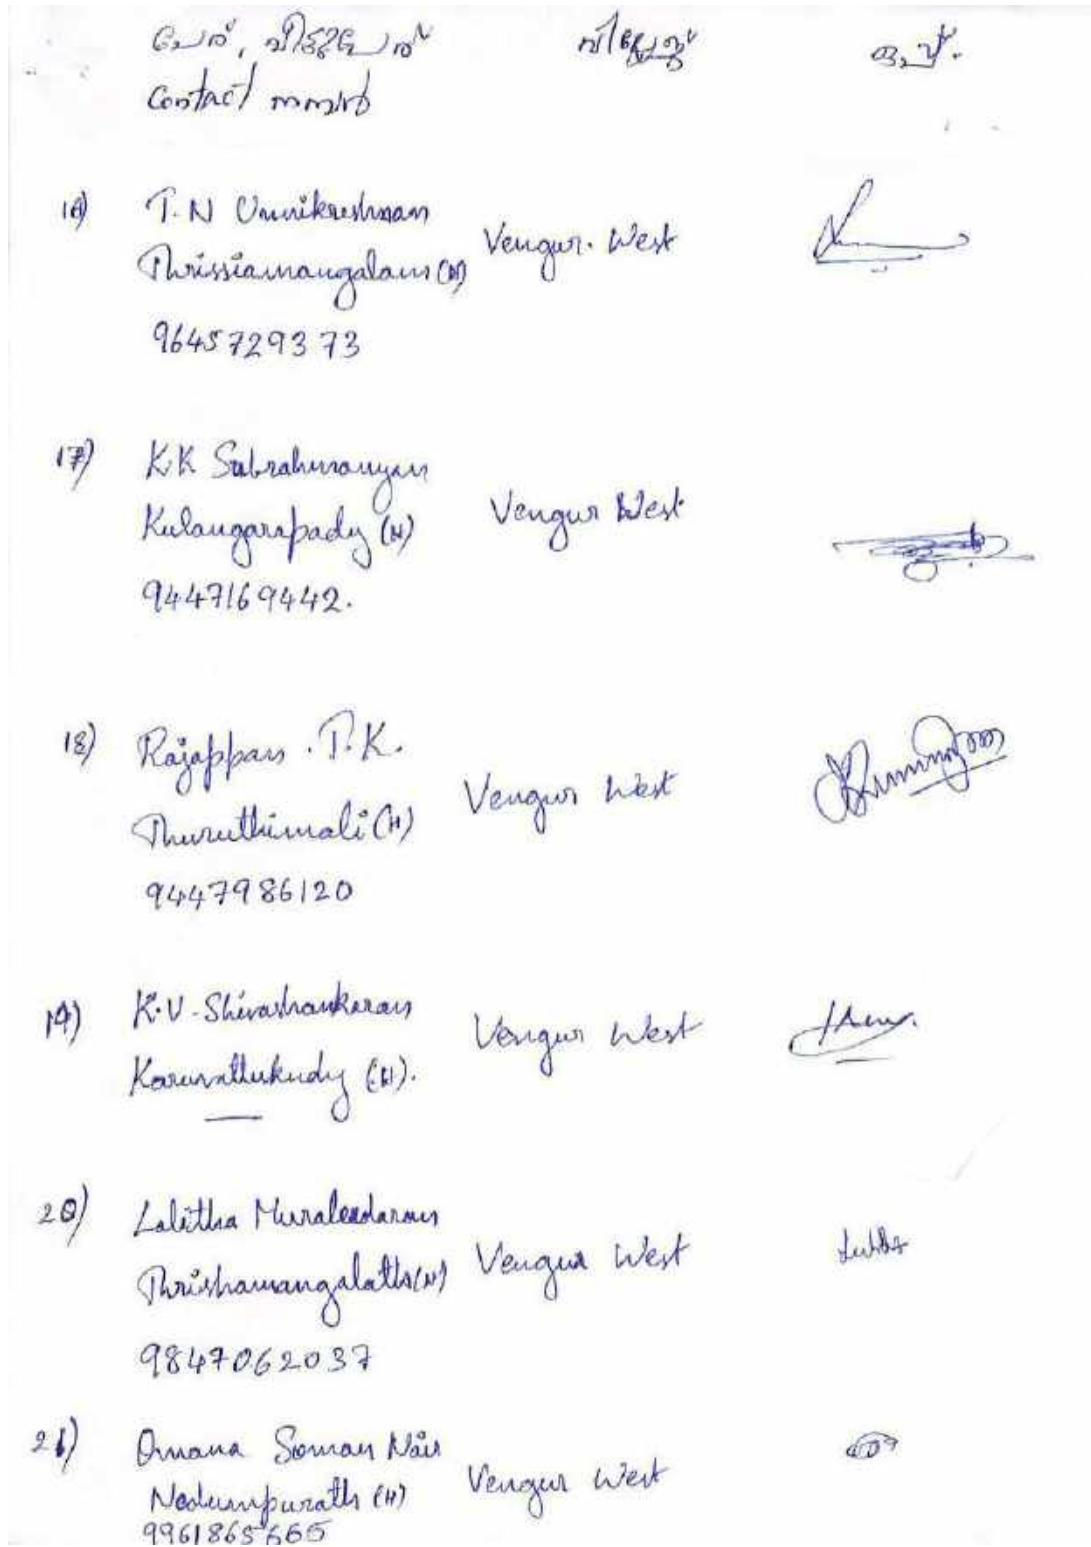 പേര്, വീട്ടുപേര് വില്ലേജ് ഒപ്പ്.
Contact നമ്പർ
16) T.N Unnikrishnan
Thrissiamangalam (H) Vengur. West
9645729373
17) K.K Subrahmanyan
Kulangarapady (H) Vengur West
9447169442.
18) Rajappan . T. K.
Thuruthimali (H) Vengur West
9447986120
19) K.V-Shivashankaran Vengur West
Karuvattukudy (H).
20) Lalitha Muraleedaran
Thrishamangalath (H) Vengur West
9847062037
21) Omana Soman Nair
Nedumpurath (H) Vengur West
9961865665